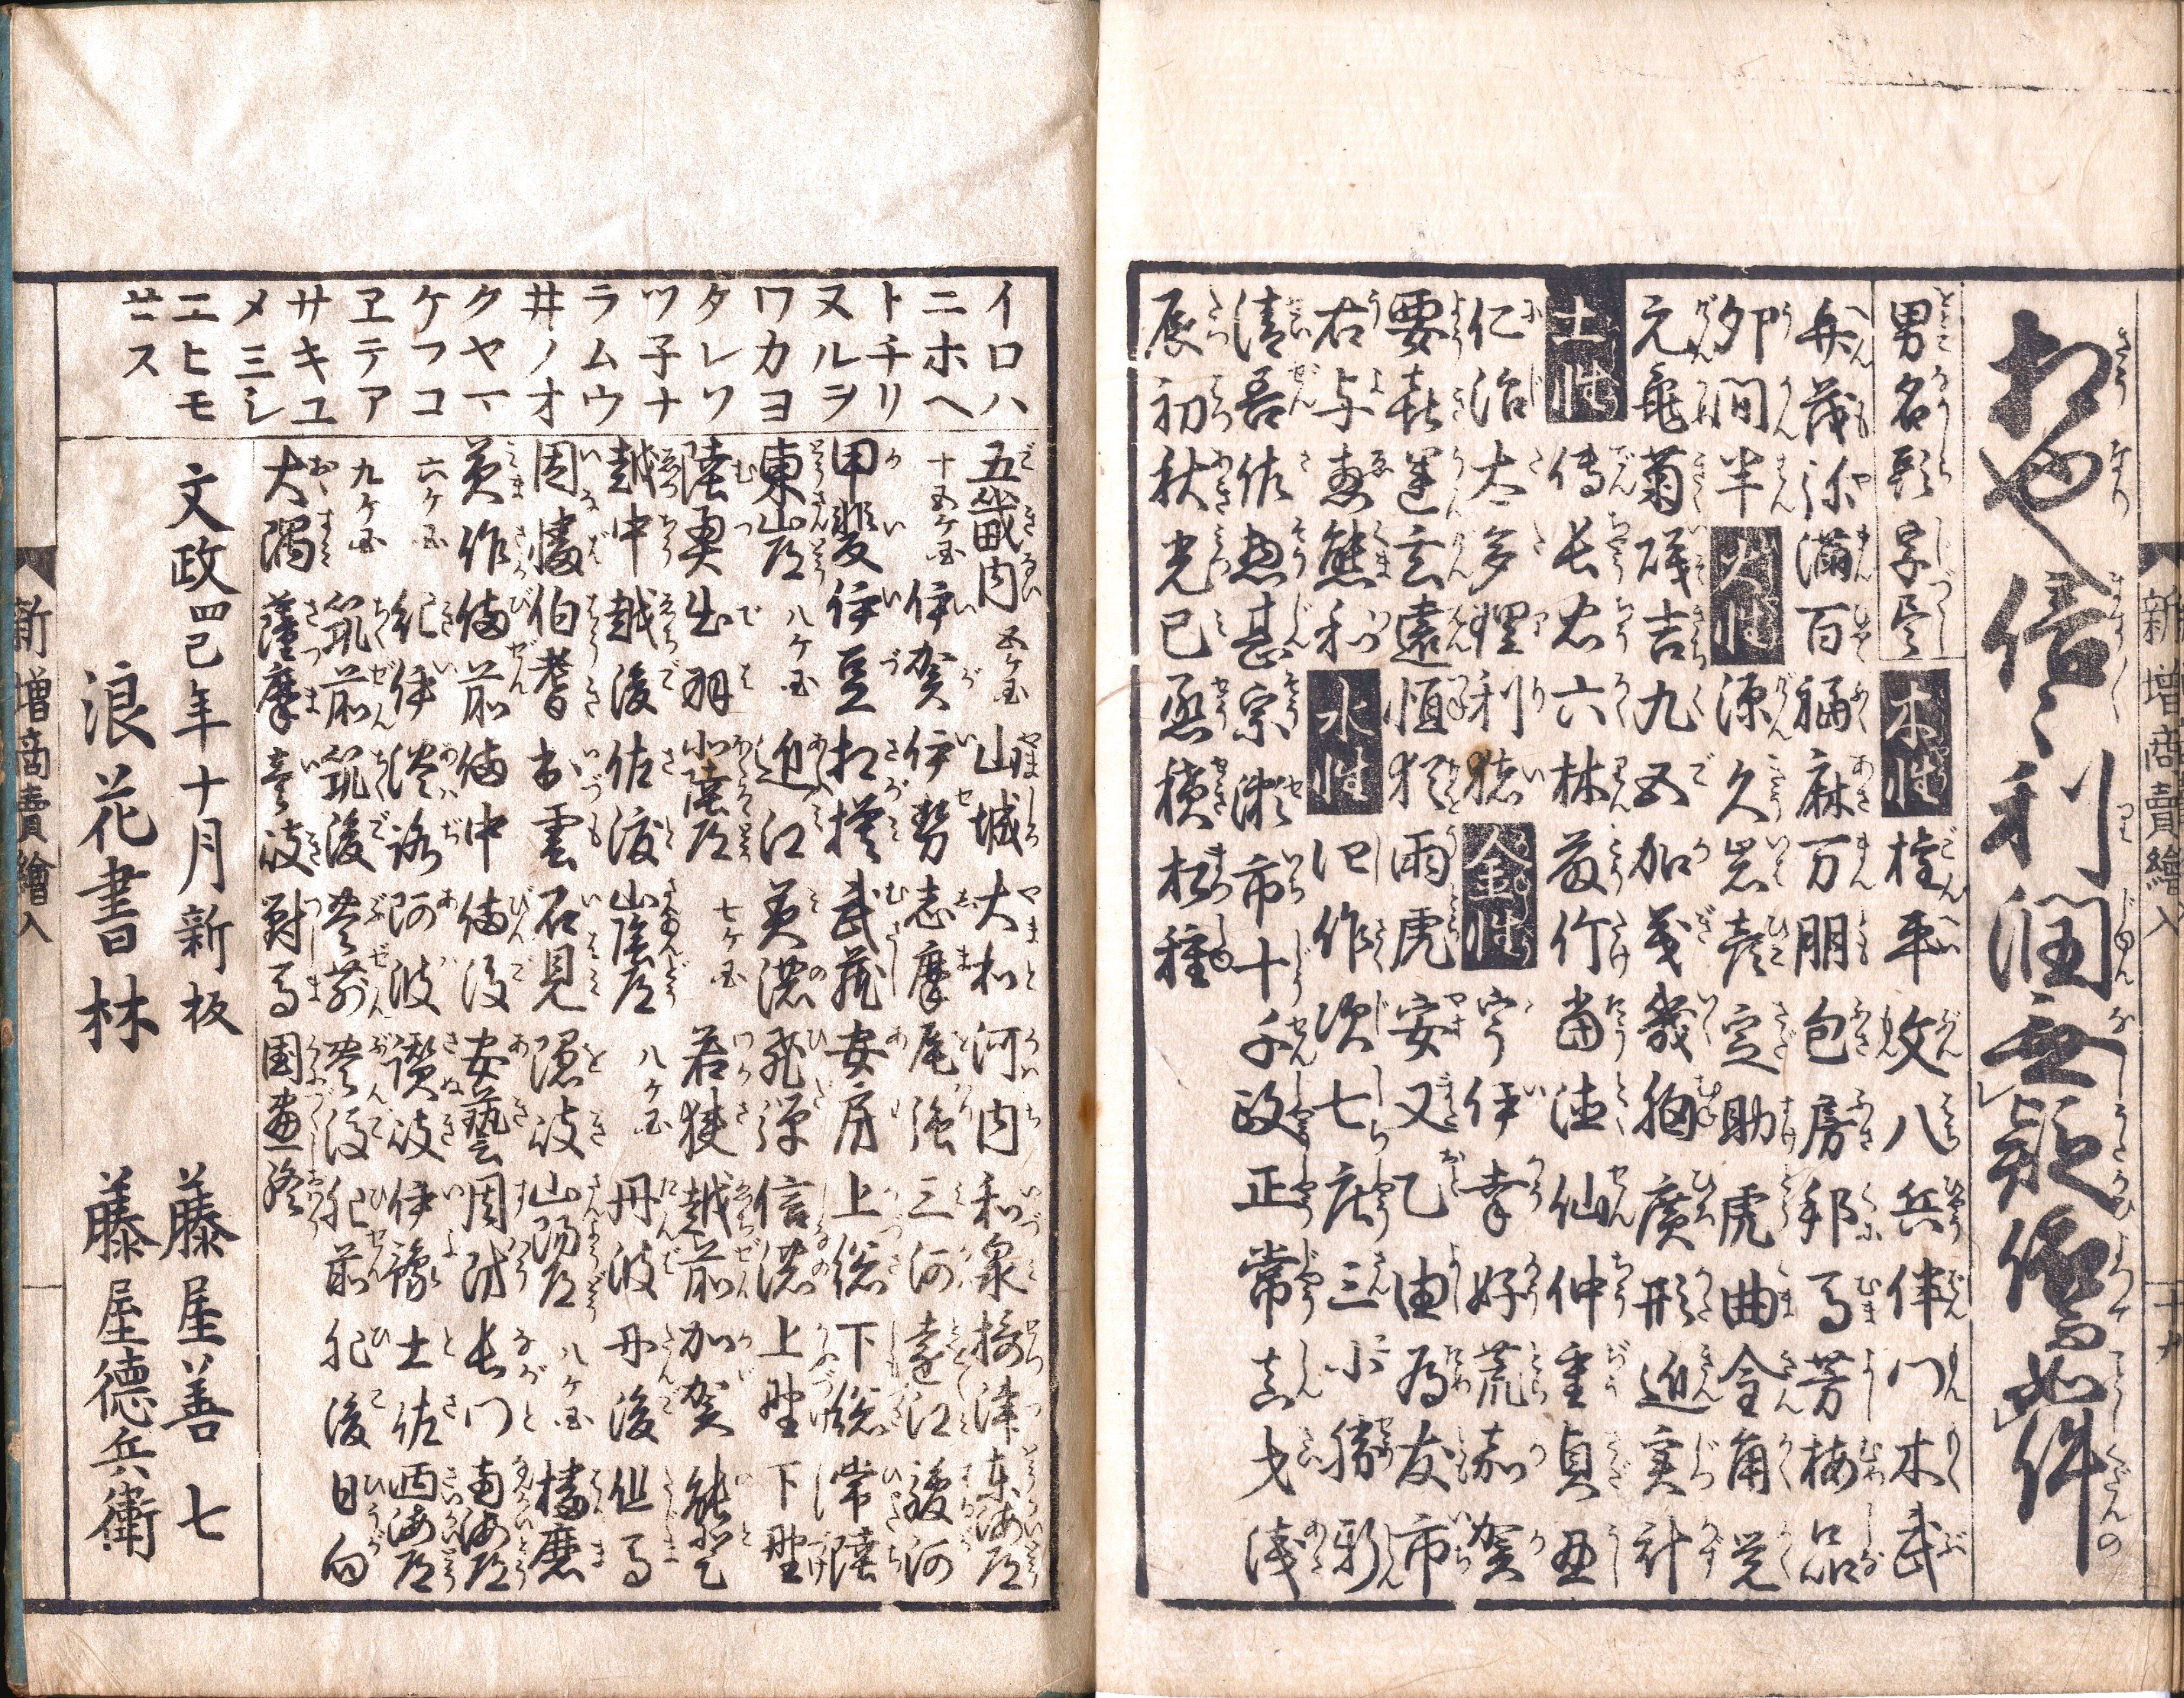 相也倍々利潤無疑仍而如件
男名頭字尽 木性 権平文八兵伴門木武
弁茂弥満百福麻万朋包房邦馬芳梅品
卯間半 火性 源久岩彦定助虎曲金角覚
元亀菊礒吉九五加義幾胸廣形近実計
土性 傳長忠六林藤竹當徳仙仲重貞丑
仁治太多理利猪 金性 寧伊幸好荒嘉賀
要喜運玄遠恒猶雨虎安又乙由為友市
右与恵熊和 水性 四作次七庄三小勝新
清善佐惣甚宗瀬市十千政正常真才浅
辰初秋光巳丞積松種
新増商賣繪入
十九
イロハ
ニホヘ
トチリ
ヌルヲ
ワカヨ
タレソ
ツ子ナ
ラムウ
井ノオ
クヤマ
ケフコ
ヱテア
サキユ
メミシ
エヒモ
セス
五畿内 五ケ国 山城大和河内和泉摂津東海道
十五ケ国 伊賀伊勢志摩尾張三河遠江駿河
甲斐伊豆相模武蔵安房上総下総常陸
東山道 八ケ国 近江美濃飛騨信濃上野下野
陸奥出羽北陸道 七ケ国 若狭越前加賀能登
越中越後佐渡山陰道 八ケ国 丹波丹後但馬
因幡伯耆出雲石見隠岐山陽道 八ケ国 播磨
美作備前備中備後安藝周防長門南海道
六ケ国 紀伊淡路阿波讃岐伊豫土佐西海道
九ケ国 筑前筑後豊前豊後肥前肥後日向
大隅薩摩壱岐対馬国盡終
文政四巳年十月新板
浪花書林
藤屋善七
藤屋徳兵衛
新増商賣繪入